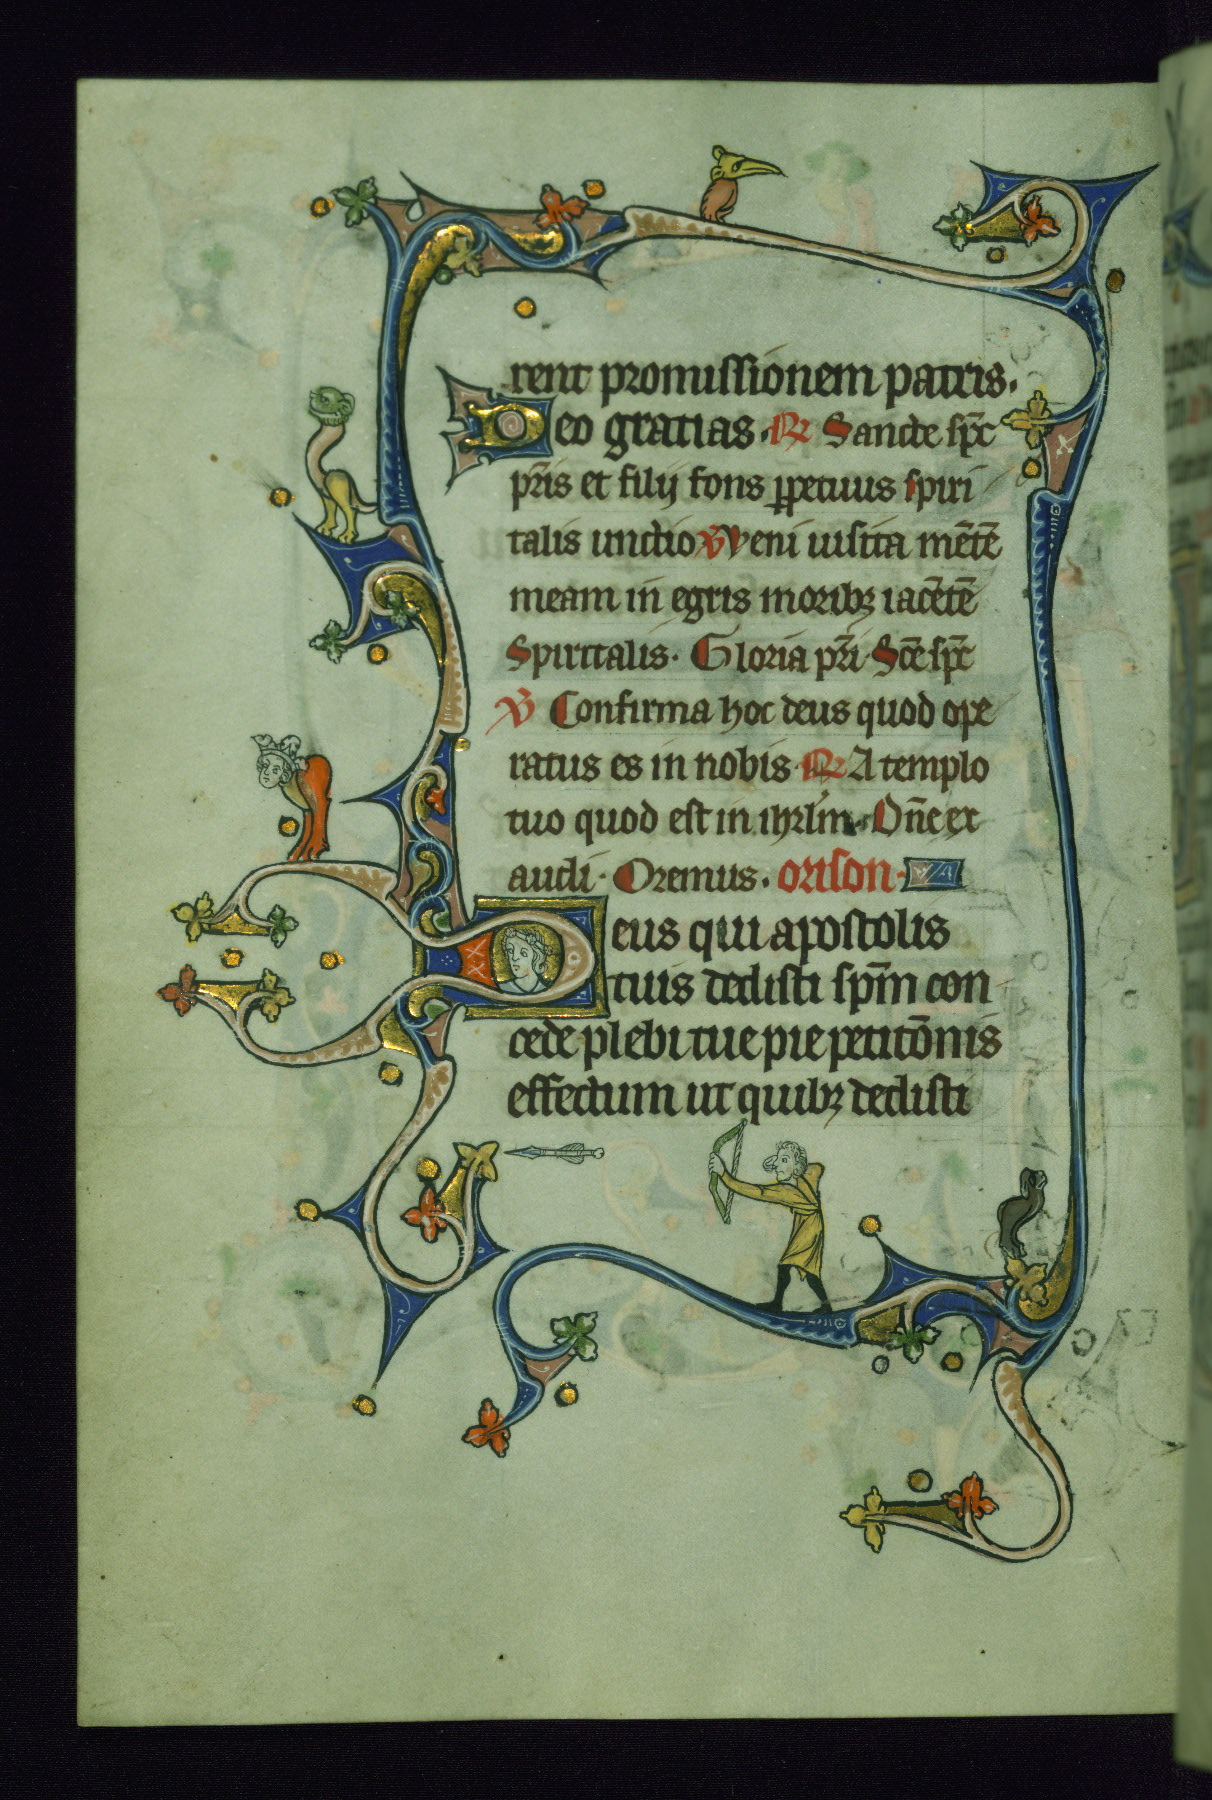 rent promissionem patris.
Deo gratias. R Sancte sp̄c
p̄ris et filij fons ꝑpetuus spiri
talis unctio V Veni uisita mētē
meam in egris moribꝫ iacētē
Spiritalis. Gloria p̄ri. Sc̄e sp̄c
V Confirma hoc deus quod ope
ratus es in nobis. R A templo
tuo quod est in ihrl̄m. Dn̄e ex
audi. Oremus. orison.
Deus qui apostolis
tuis dedisti sp̄m con
cede plebi tue pie petitōnis
effectum ut quibꝫ dedisti